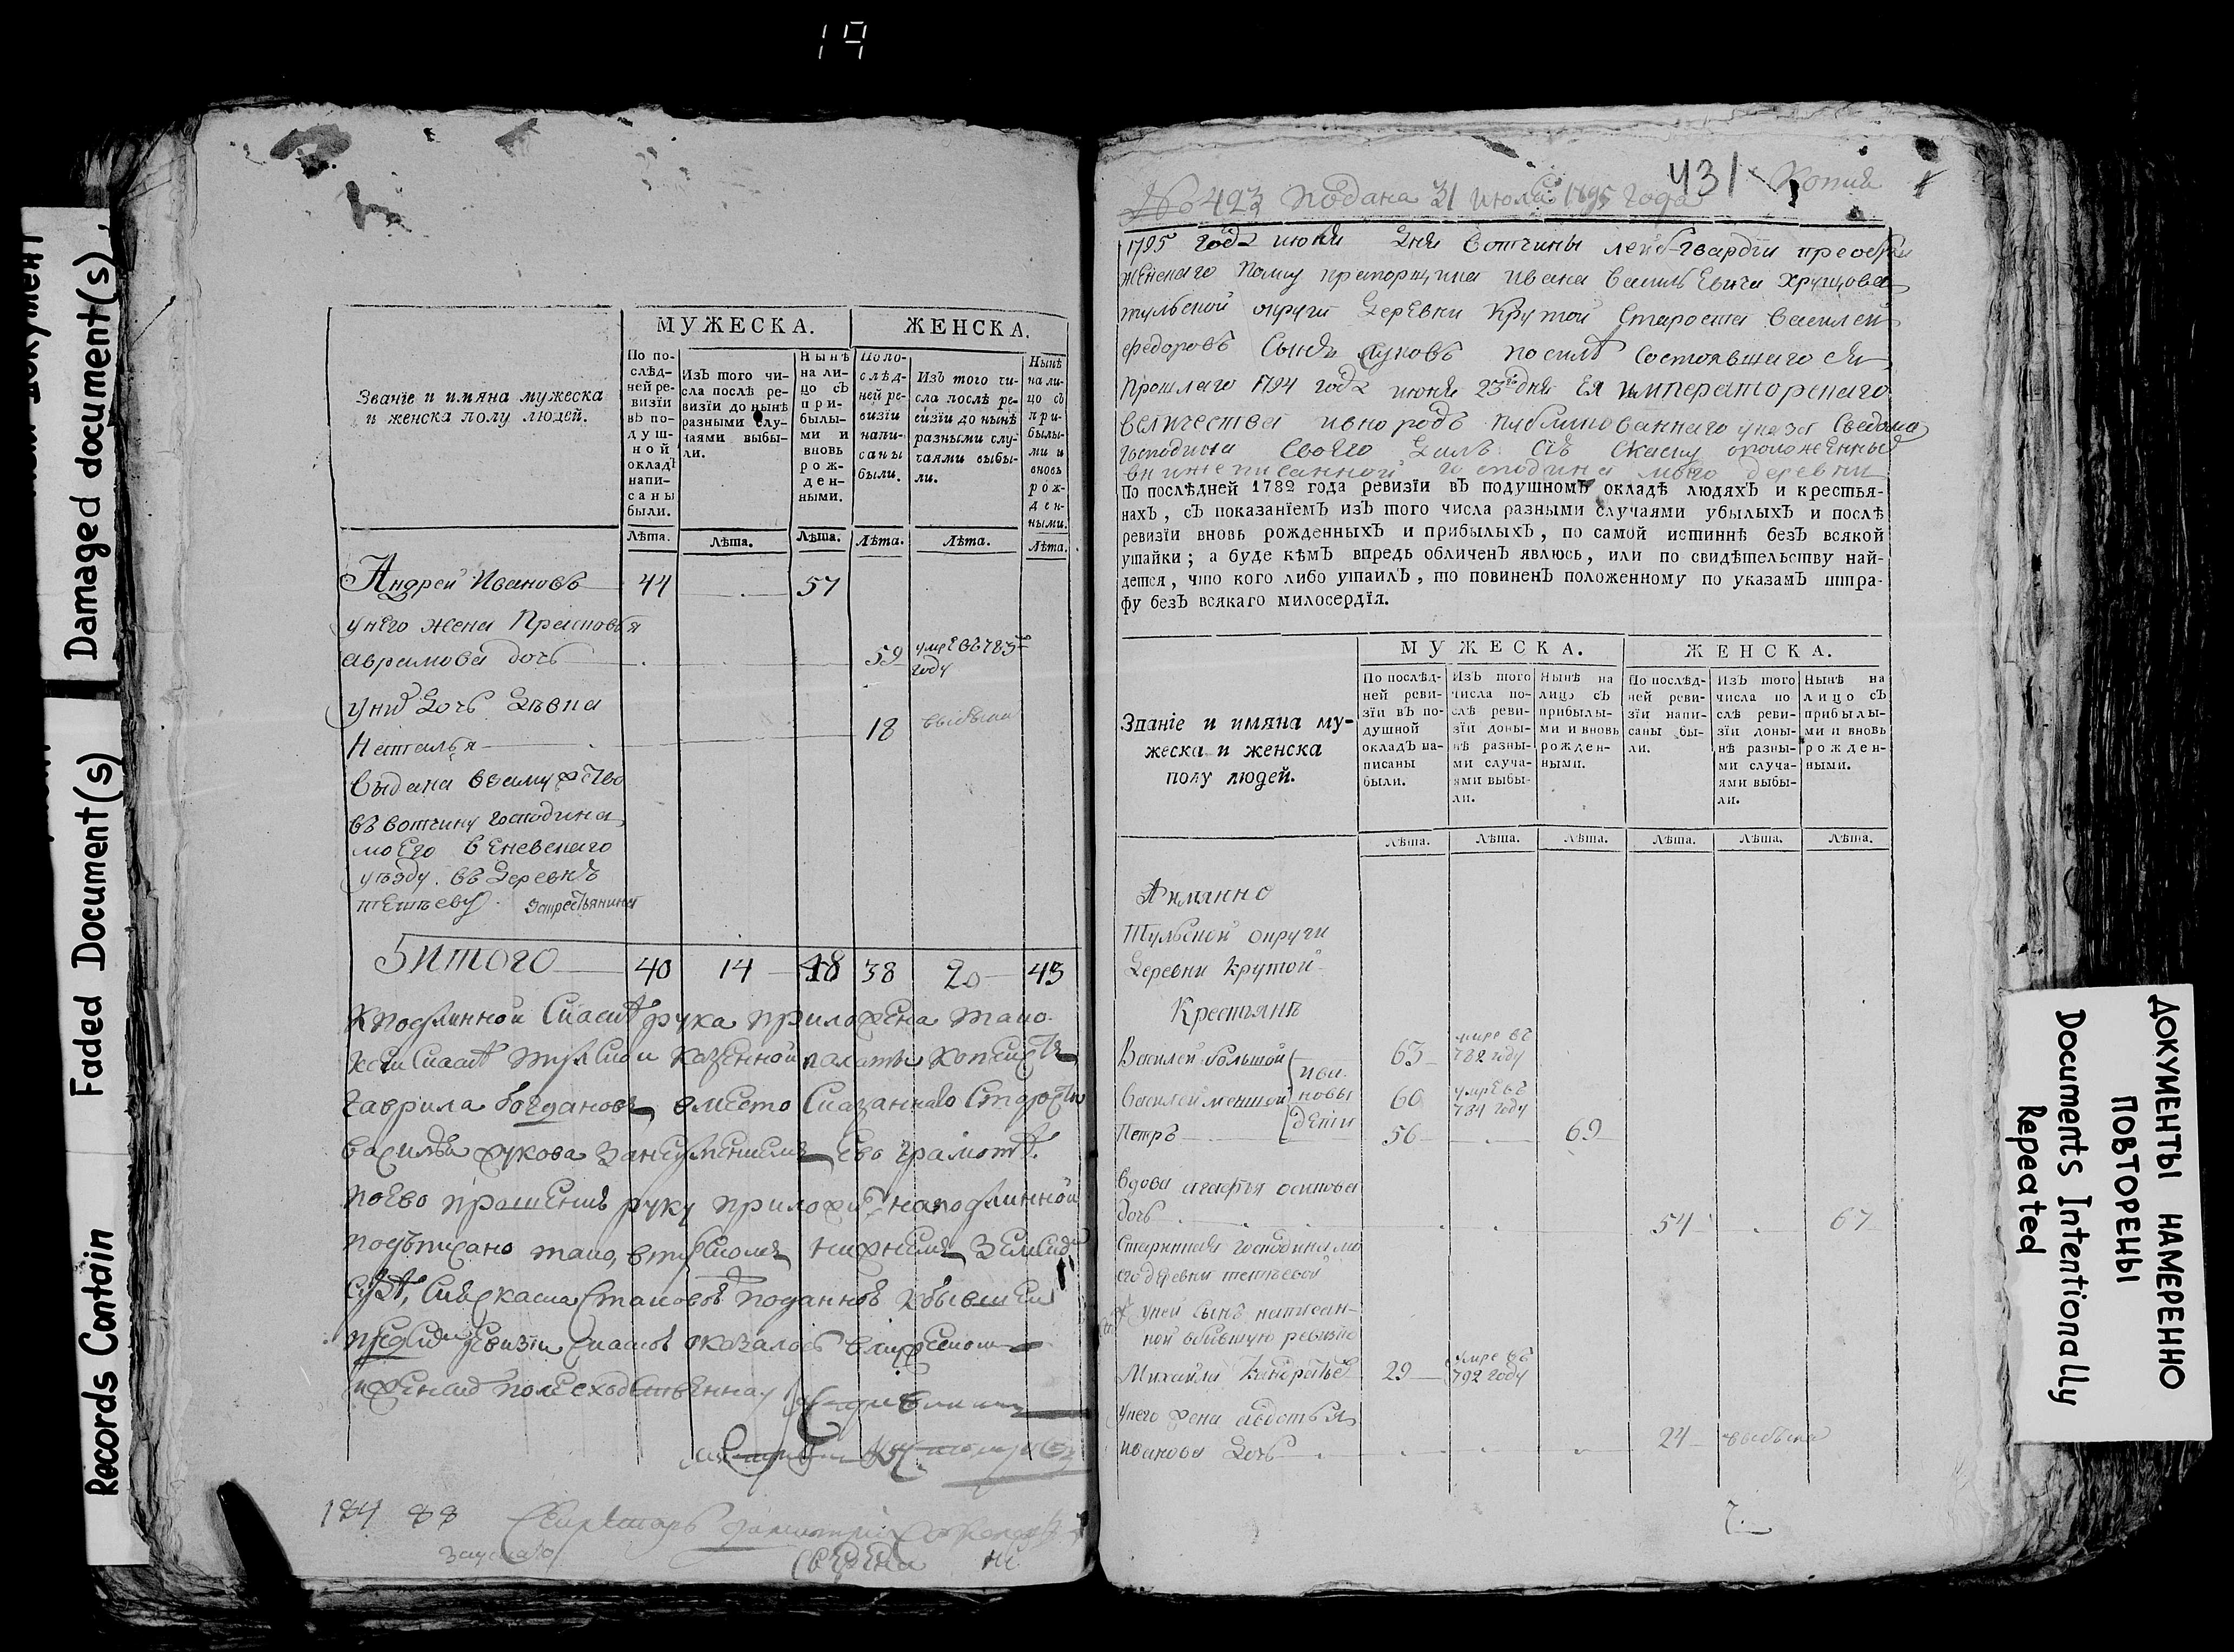 19
Damaged document(s),
Faded Document(s)
Records Contain
МУЖЕСКА.
ЖЕНСКА.
Званіе и имяна мужеска
и женска полу людей.
По по-
слѣд-
ней ре-
визіи
въ по-
душ-
ной
окладъ
напи-
саны
были.
Изъ того чи-
сла послѣ ре-
визіи до нынѣ
разными слу-
чаями выбы-
ли.
Нынѣ
на ли-
цо съ
при-
былы-
ми и
вновь
рож-
ден-
ными.
По по-
слѣд-
ней ре-
визіи
напи-
саны
были.
Изъ того чи-
сла послѣ ре-
визіи до нынѣ
разными слу-
чаями выбы-
ли.
Нынѣ
на ли-
цо съ
при-
былы-
ми и
вновь
рож-
ден-
ными.
Лѣта. Лѣта. Лѣта. Лѣта. Лѣта. Лѣта.
Андрей Ивановъ 44 57
у него жена Прасковья
аврамова дочь 59 умре въ 783 году
у них дочь девка
Наталья 18 выбыла
выдана взамужство
въ вотчину господина
моего Веневскаго
уезду въ деревнѣ
за крестьянина
Итого 40 14 48 38 20 43
К подлинной скаске рука приложена тако
к сей скаске тульской казенной палаты копеистъ
гаврила богдановъ вместо сказаннаго старосты
василья жукова за неумениемъ ево грамоте
по ево прошению руку приложилъ на подлинной
подписано тако, в тульскомъ нижнемъ земскомъ
суде, сия скаска с таковою поданною к бывшей
пред сим ревизии скаскою оказалось в мужеском
и женском поле сходственна
184 88
Секретарь
№ 423 Подана 31 июля 1895 года
431
Копия
1795 года июня дня вотчины лейб-гвардіи преобра
женскаго полку прапорщика ивана васильевича хрущова
тульской округи деревни Крутой Староста василей
федоровъ сынъ жуковъ по силѣ состоявшагося
прошлаго 1794 года июня 23го дня Ея императорскаго
величества и в народъ публикованнаго указа с ведома
господина своего далъ сію скаску о положенных
в нижеписанной господина моего деревни
По послѣдней 1782 года ревизіи въ подушномъ окладѣ людяхъ и крестья-
нахъ, съ показаніемъ изъ того числа разными случаями убылыхъ и послѣ
ревизіи вновь рожденныхъ и прибылыхъ, по самой истиннѣ безъ всякой
утайки; а буде кѣмъ впредь обличенъ явлюсь, или по свидѣтельству най-
дется, что кого либо утаилъ, то повиненъ положенному по указамъ штра-
фу безъ всякаго милосердія.
МУЖЕСКА.
ЖЕНСКА.
Званіе и имяна му-
жеска и женска
полу людей.
По послѣд-
ней реви-
зіи въ по-
душной
окладъ на-
писаны
были.
Изъ того
числа по-
слѣ реви-
зіи доны-
нѣ разны-
ми случа-
ями выбы-
ли.
Нынѣ на
лицо съ
прибылы-
ми и вновь
рожден-
ными.
По послѣд-
ней реви-
зіи напи-
саны бы-
ли.
Изъ того
числа по
слѣ реви-
зіи доны-
нѣ разны-
ми случа-
ями выбы-
ли.
Нынѣ на
лицо съ
прибылы-
ми и вновь
рожден-
ными.
Лѣта. Лѣта. Лѣта. Лѣта. Лѣта. Лѣта.
А имянно
Тульской округи
деревни Крутой
Крестьянъ
Василей большой 63 умре въ 782 году
Василей меншой 60 умре въ 784 году
Петръ 56 69
ива
новы
дети
вдова агафья осипова
дочь 54 67
Старинная господина мо
его деревни
у ней сынъ написан-
ной в бывшую ревизію
Михайла Кандратьев 29 умре въ 792 году
у него жена авдотья
иванова дочь 24 выбыла
ДОКУМЕНТЫ НАМЕРЕННО
ПОВТОРЕНЫ
Documents Intentionally
Repeated